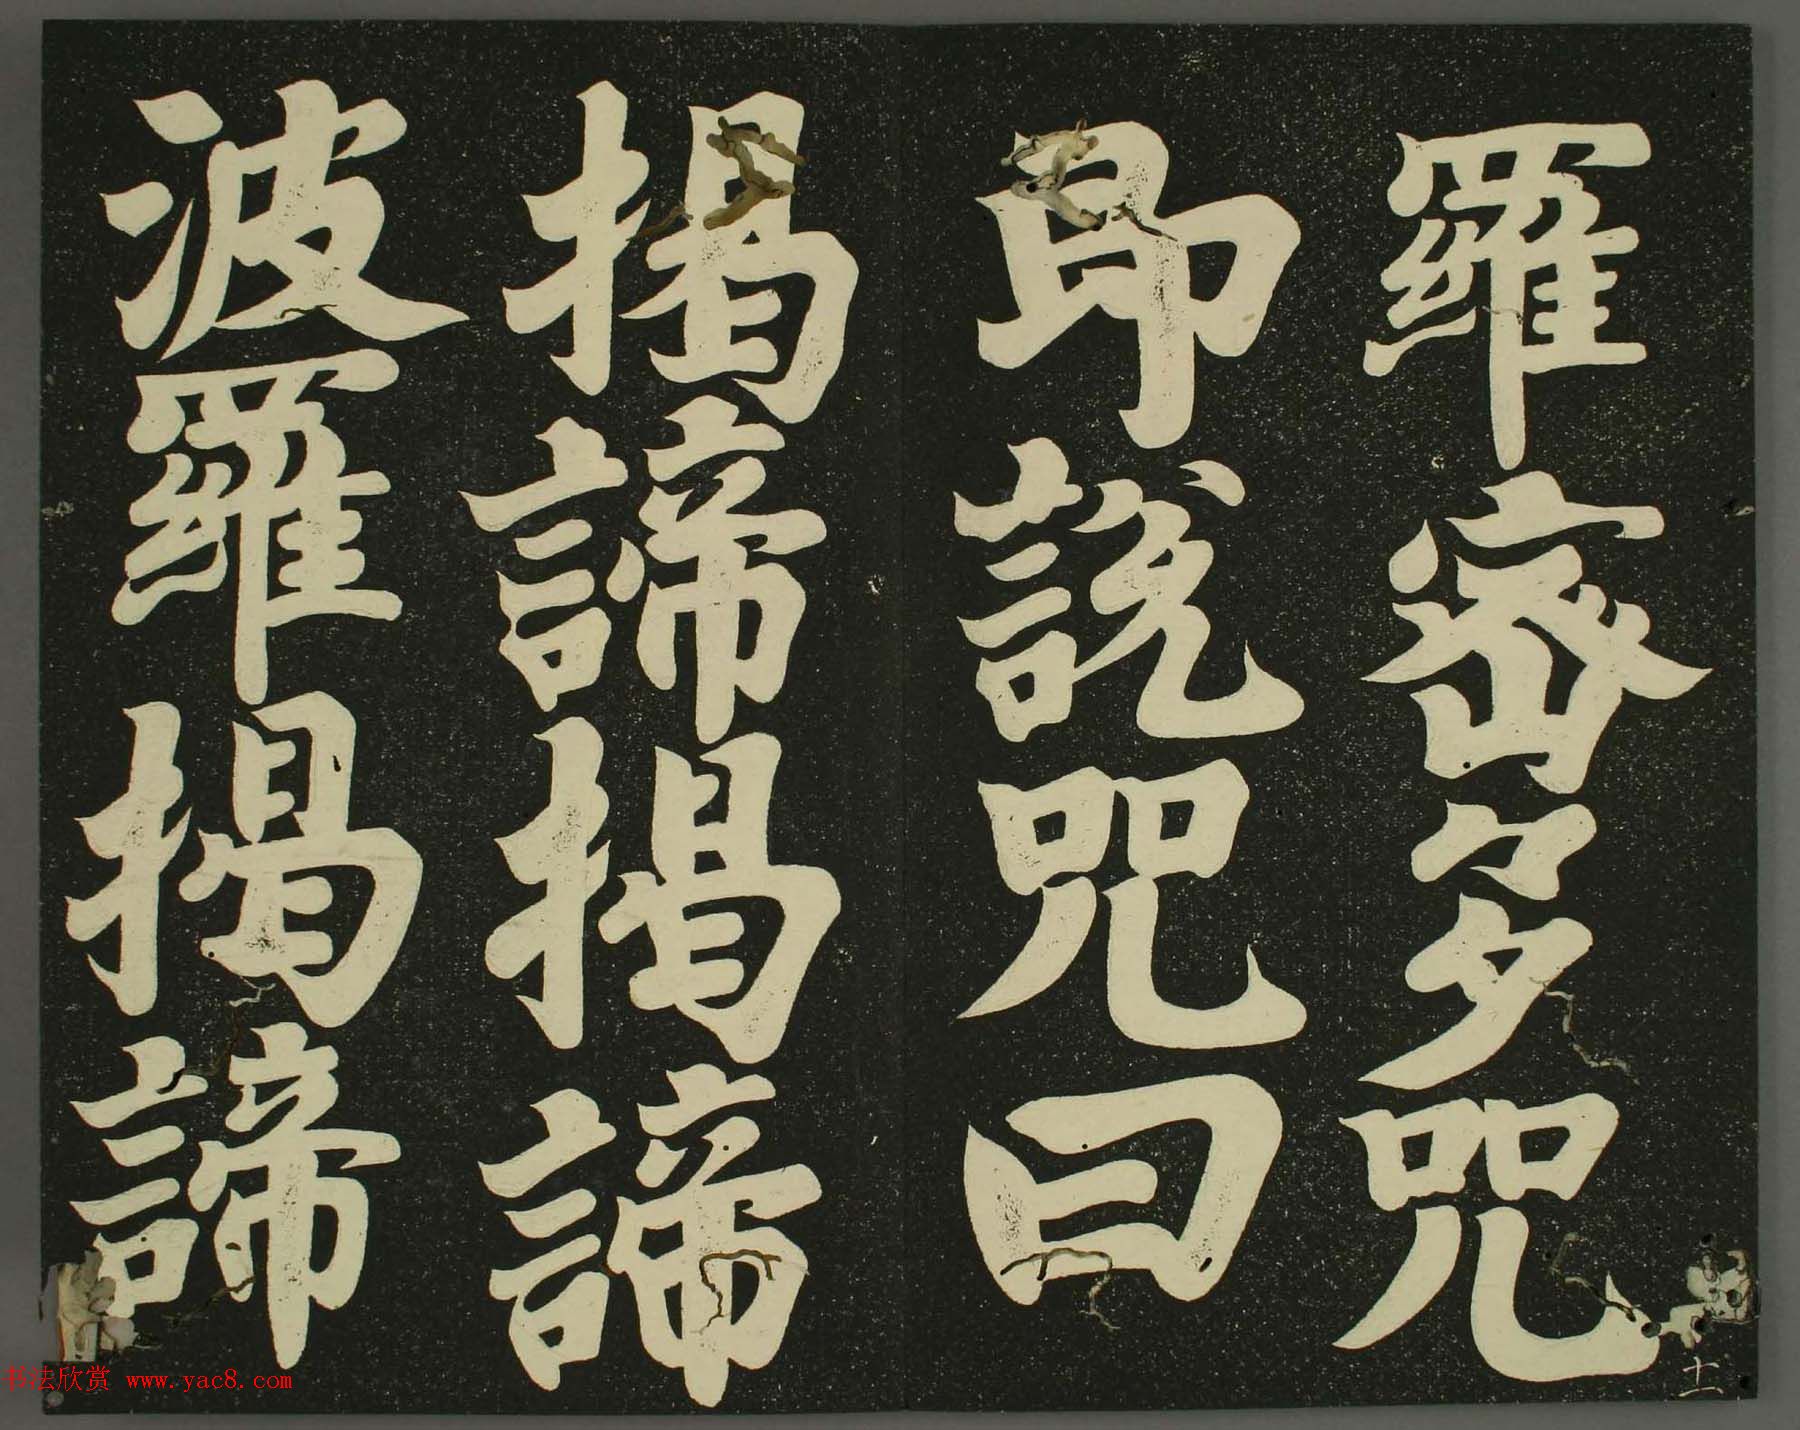 羅密多咒
即說咒曰
揭諦揭諦
波羅揭諦
十一
书法欣赏 www.yac8.com